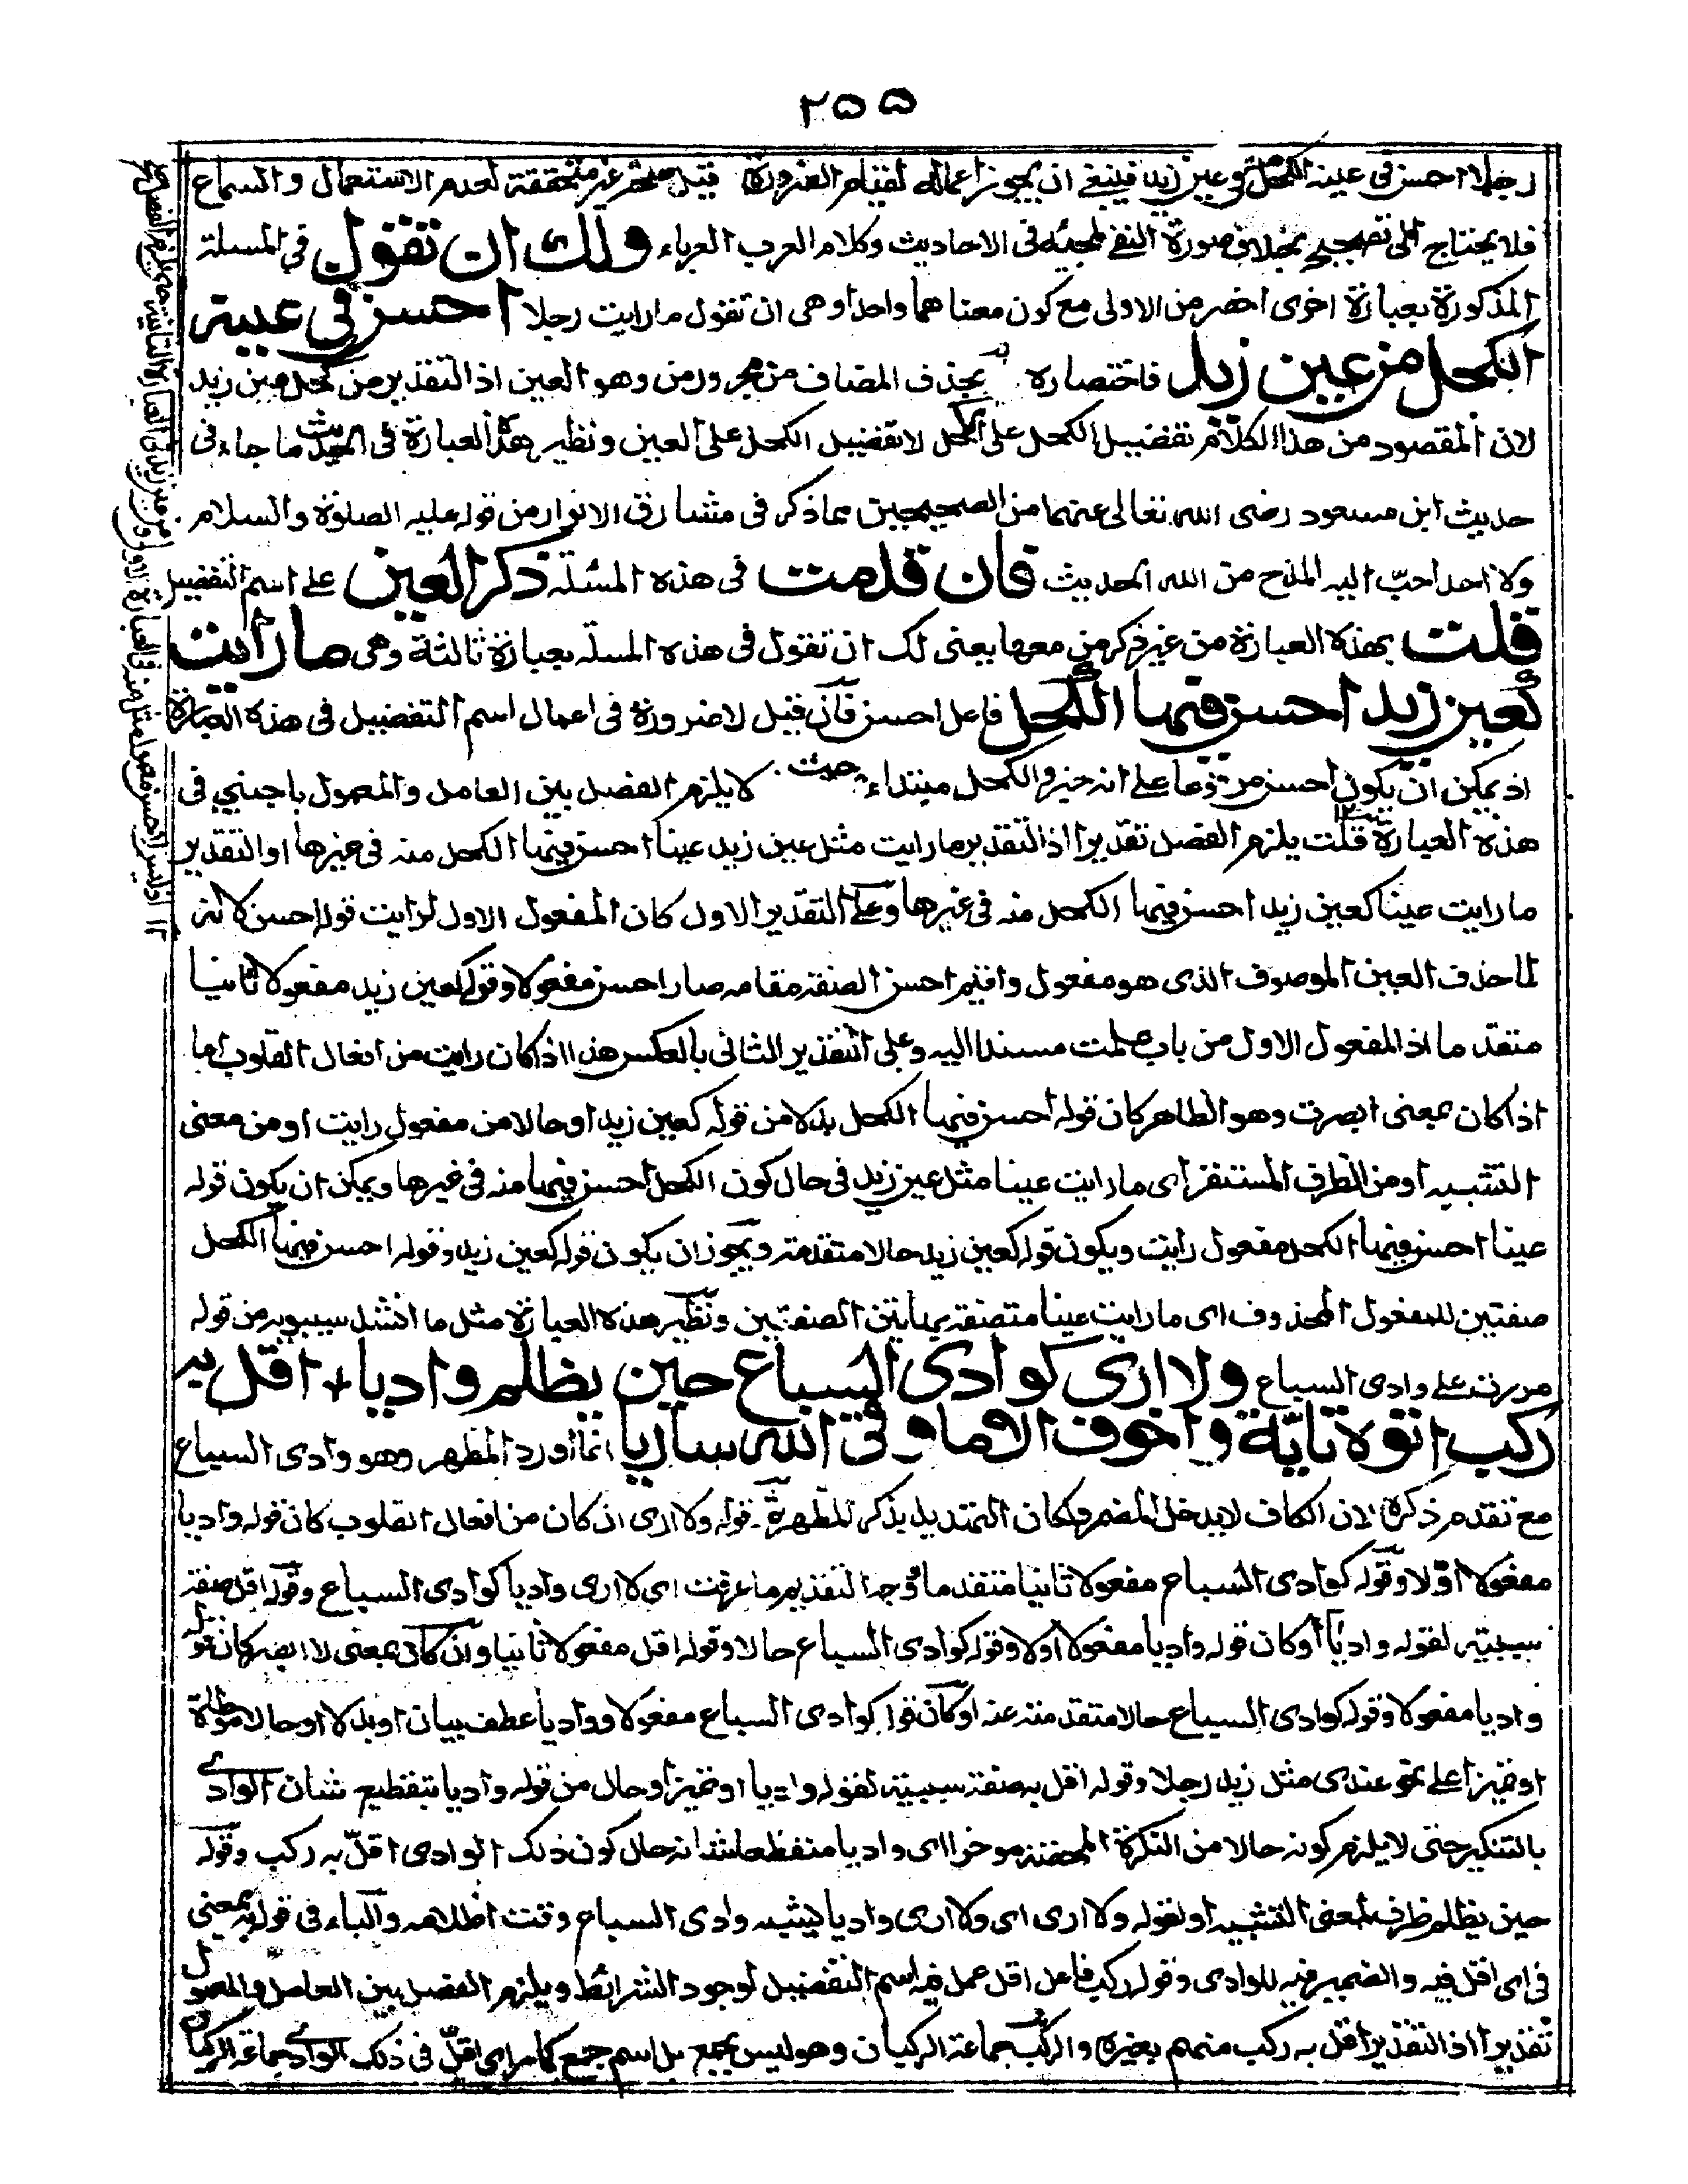 ٢٥٥
رجلا احسن فى عينه الكحل فى عين زيد فينبغى ان يجوز اعماله لقيام الضرورة قيل غير متحققة لعدم الاستعمال والسماع
فلا يحتاج الى تصحيح بخلاف صورة النفى لمجيئه فى الاحاديث وكلام العرب العرباء ولك ان تقول فى المسئلة
المذكورة بعبارة اخرى اخصر من الاولى مع كون معناهما واحدا وهى ان تقول ما رايت رجلا احسن فى عينه
الكحل من عين زيد فاختصاره بحذف المضاف من مجرور من وهو العين اذ التقدير من كحل عين زيد
لان المقصود من هذا الكلام تفضيل الكحل على الكحل لا تفضيل الكحل على العين ونظير هذه العبارة فى الحديث ما جاء فى
حديث ابن مسعود رضى الله تعالى عنهما من الصحيحين مما ذكر فى مشارق الانوار من قوله عليه الصلوة والسلام
ولا احد احبّ اليه المدح من الله الحديث فان قدمت فى هذه المسئلة ذكر العين على اسم التفضيل
قلت بهذه العبارة من غير ذكر من معها يعنى لك ان تقول فى هذه المسئلة بعبارة ثالثة وهى ما رايت
كعين زيد احسن فيها الكحل فاعل احسن فان قيل لا ضرورة فى اعمال اسم التفضيل فى هذه العبارة
اذ يمكن ان يكون احسن مرفوعا على انه خبر والكحل مبتداء حيث لا يلزم الفصل بين العامل والمعمول باجنبي فى
هذه العبارة قلت يلزم الفصل تقديرا اذ التقدير ما رايت مثل عين زيد عينا احسن فيها الكحل منه فى غيرها او التقدير
ما رايت عينا كعين زيد احسن فيها الكحل منه فى غيرها وعلى التقدير الاول كان المفعول الاول لرايت قوله احسن لانه
لما حذف العين الموصوف الذى هو مفعول واقيم احسن الصفة مقامه صار احسن مفعولا وقوله كعين زيد مفعولا ثانيا
متقدما اذ المفعول الاول من باب علمت مسندا اليه وعلى التقدير الثانى بالعكس هذا اذا كان رايت من افعال القلوب اما
اذا كان بمعنى ابصرت وهو الظاهر كان قوله احسن فيها الكحل بدلا من قوله كعين زيد او حالا من مفعول رايت او من معنى
التشبيه او من الظرف المستقر اى ما رايت عينا مثل عين زيد فى حال كون الكحل احسن فيها منه فى غيرها ويمكن ان يكون قوله
عينا احسن فيها الكحل مفعول رايت ويكون قوله كعين زيد حالا متقدمة ويجوز ان يكون قوله كعين زيد وقوله احسن فيها الكحل
صفتين للمفعول المحذوف اى ما رايت عينا متصفة بهاتين الصفتين ونظير هذه العبارة مثل ما انشد سيبويه من قوله
مررت على وادى السباع ولا ارى كوادى السباع حين يظلم واديا + اقل به
ركب اتوه تايّة واخوف الا ما وقى الله ساريا انما اورد المظهر وهو وادى السباع
مع تقدم ذكره لان الكاف لا يدخل المضمر قوله ولا ارى ان كان من افعال القلوب كان قوله واديا
مفعولا اوّلا وقوله كوادى السباع مفعولا ثانيا متقدما وجه التقدير ما عرفت اى لا ارى واديا كوادى السباع وقوله اقل صفة
سببية لقوله واديا او كان قوله واديا مفعولا اولا وقوله كوادى السباع حالا وقوله اقل مفعولا ثانيا وان كان بمعنى لا ابصر كان قوله
واديا مفعولا وقوله كوادى السباع حالا متقدمة عنه او كان قوله كوادى السباع مفعولا وواديا عطف بيان او بدلا او حالا موطئة
او تميزا على نحو عندى مثل زيد رجلا وقوله اقل به صفة سببية لقوله واديا او تميز او حال من قوله واديا بتفظيع شان الوادى
بالتنكير حتى لا يلزم كونه حالا من النكرة المحضة موخرا اى واديا متفظعا شانه حال كون ذلك الوادى اقلّ به ركب وقوله
حين يظلم ظرف لمعنى التشبيه او لقوله ولا ارى اى ولا ارى واديا يشبه وادى السباع وقت اظلامه والباء فى قوله به بمعنى
فى اى اقل فيه والضمير فيه للوادى وقوله ركب فاعل اقل عمل فيه اسم التفضيل لوجود الشرائط ويلزم الفصل بين العامل والمعمول
تقديرا اذ التقدير اقل به ركب منهم بغيره والركب جماعة الركبان وهو ليس بجمع بل اسم جمع كما مر اى اقلّ فى ذلك الوادى جماعة الركبان